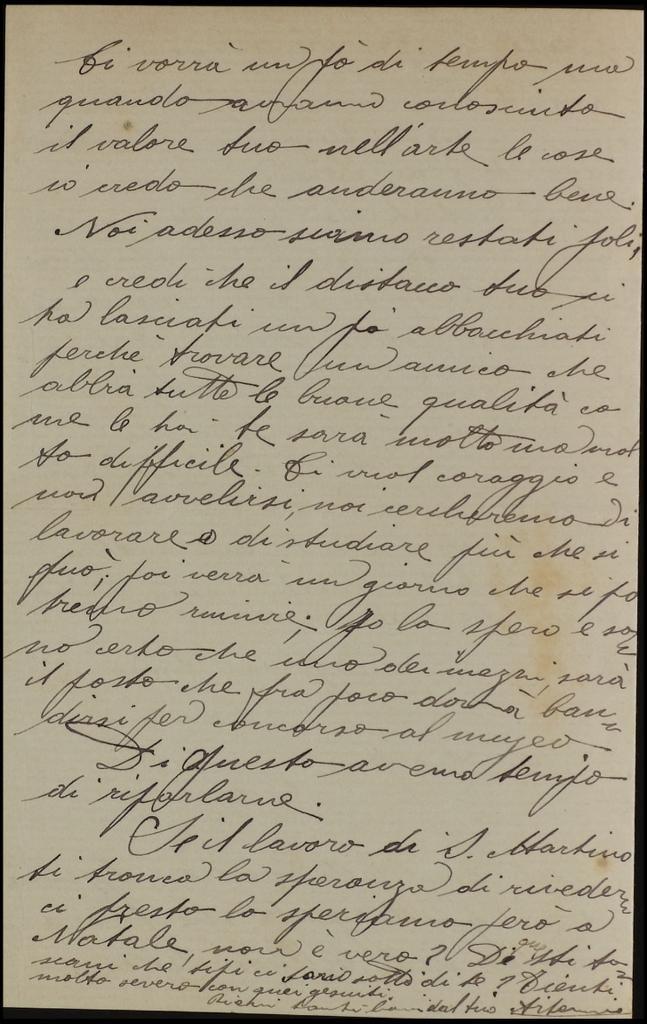 Ci vorrà un pò di tempo ma
quando avranno conosciuto
il valore tuo nell'arte le cose
io credo che anderanno bene.
Noi adesso siamo restati soli,
e credi che il distacco tuo ci
ha lasciati un pò abbacchiati
perchè trovare un amico che
abbia tutte le buone qualità co
me le hai te sarà molto ma mol
to difficile. Ci vuol coraggio e
non avvelirsi, noi cercheremo di
lavorare e di studiare più che si
può, poi verrà un giorno che si po
tremo riunire; Io lo spero e so=
no certo che uno dei mezzi, sarà
il posto che fra poco dovrà ban=
dirsi per concorso al museo
Di questo avemo tempo
di riparlarne.
Se il lavoro di S. Martino
ti tronca la speranza di riveder=
ci presto lo speriamo però a
Natale, non è vero? Di questi to=
scani che tipi ci sono sotto di te? Tienti
molto severo con quei gesuiti.
dal tuo